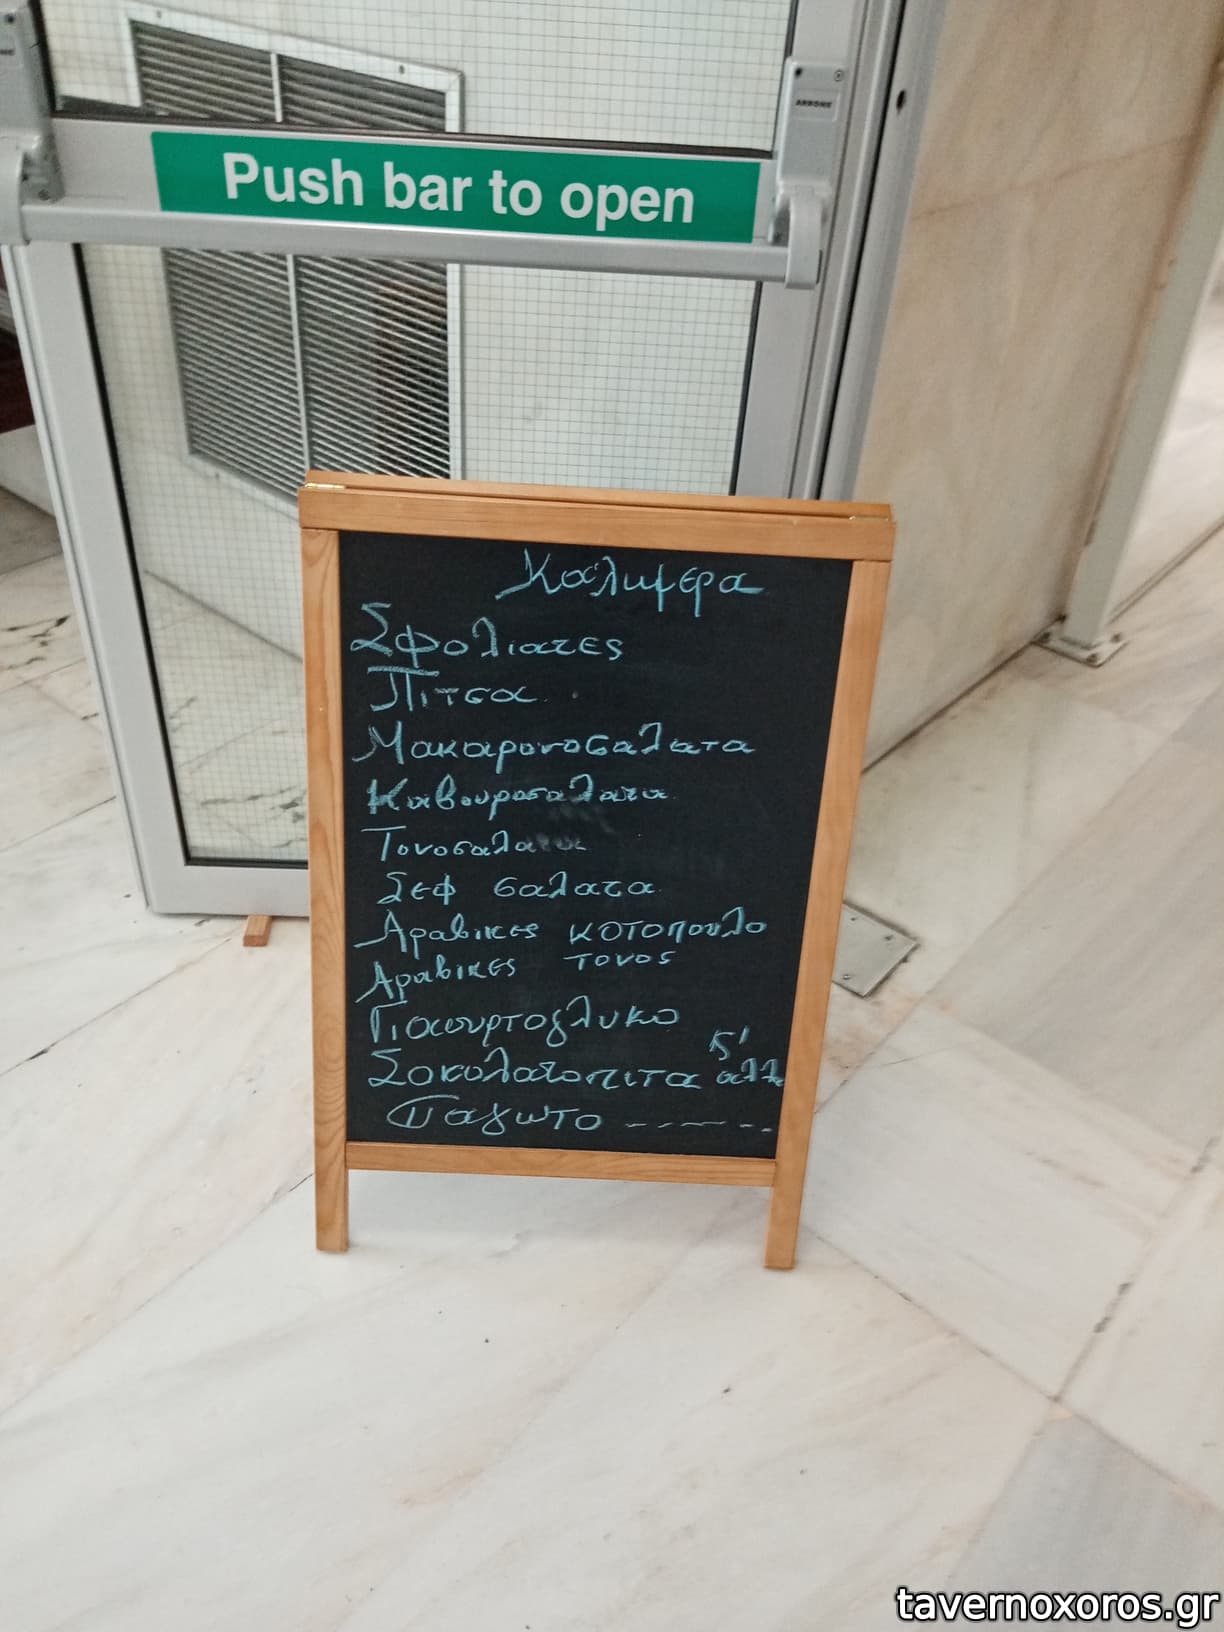 ARBONE
Push bar to open
Καλημερα
Σφολιατες
Πιτσα
Μακαρονοσαλατα
Καβουροσαλατα
Τονοσαλατα
Σεφ σαλατα
Αραβικες κοτοπουλο
Αραβικες τονος
Γιαουρτογλυκο
Σοκολατοπιτα κ' αλλα
Παγωτο ------
tavernoxoros.gr